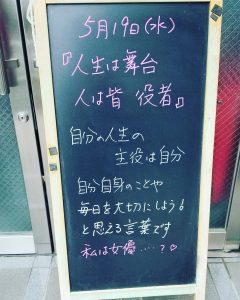 5月19日(水)
『人生は舞台
人は皆 役者』
自分の人生の
主役は自分
自分自身のことや
毎日を大切にしよう!
と思える言葉です
私は女優……?♡